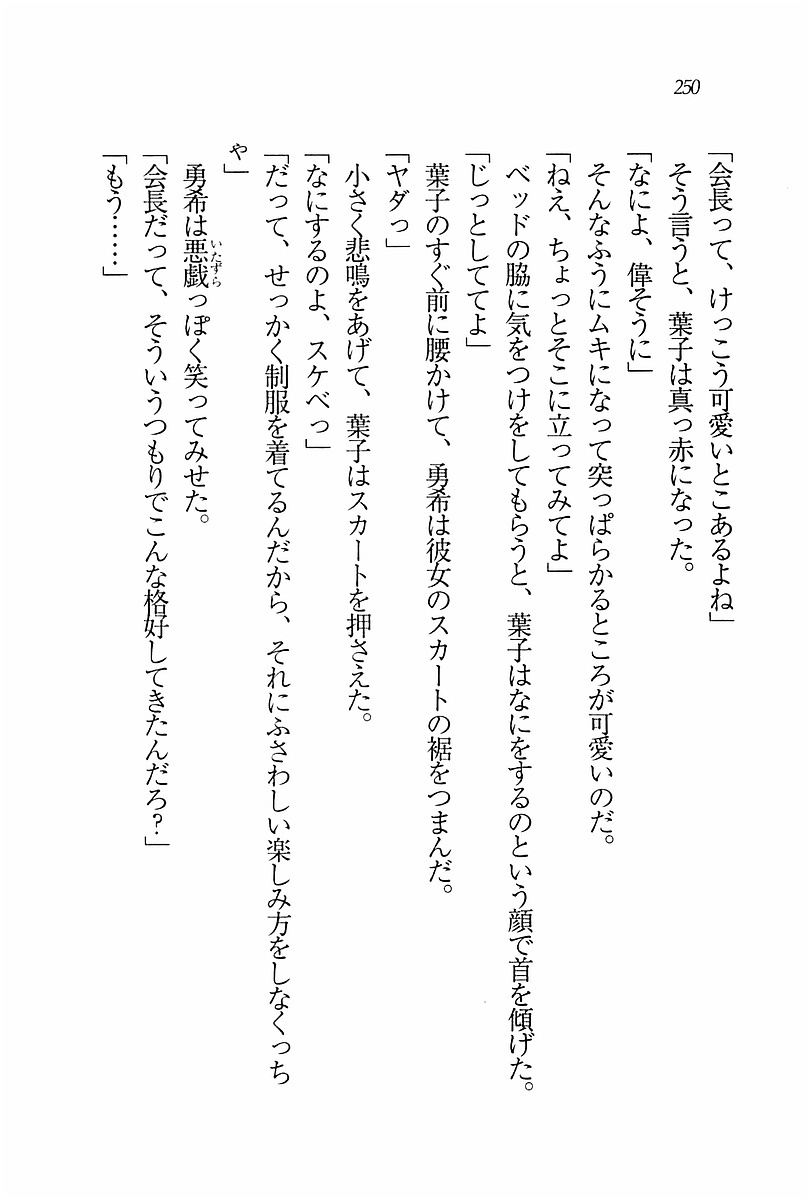 250
「会長って、けっこう可愛いとこあるよね」
そう言うと、葉子は真っ赤になった。
「なによ、偉そうに」
そんなふうにムキになって突っぱらかるところが可愛いのだ。
「ねえ、ちょっとそこに立ってみてよ」
ベッドの脇に気をつけをしてもらうと、葉子はなにをするのという顔で首を傾げた。
「じっとしててよ」
葉子のすぐ前に腰かけて、勇希は彼女のスカートの裾をつまんだ。
「ヤダっ」
小さく悲鳴をあげて、葉子はスカートを押さえた。
「なにするのよ、スケベっ」
「だって、せっかく制服を着てるんだから、それにふさわしい楽しみ方をしなくっち
ゃ」
勇希は悪戯いたずらっぽく笑ってみせた。
「会長だって、そういうつもりでこんな格好してきたんだろ?」
「もう……」